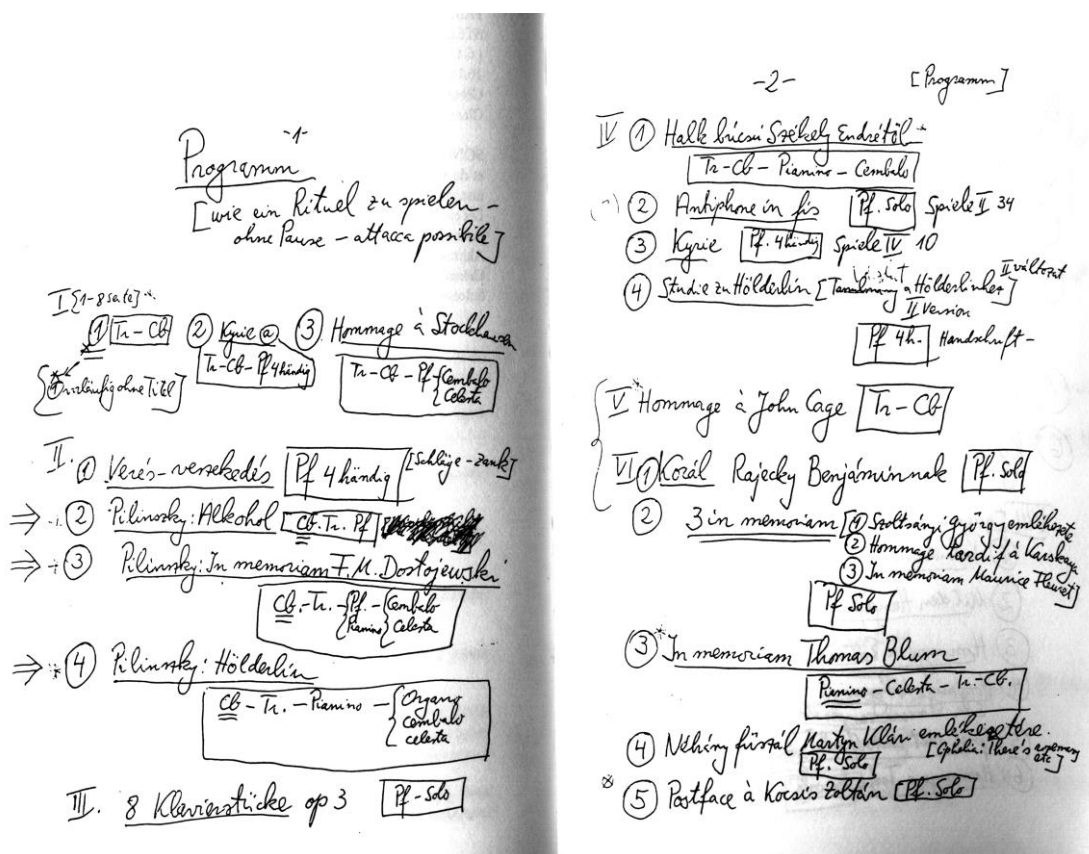 -1-
Programm
[wie ein Rituel zu spielen -
ohne Pause - attacca possibile]
I [1-8 sate] *
① Tr-Cb ② Kyrie ⓐ ③ Hommage à Stockhausen
Tr-Cb-Pf 4händig
Tr-Cb-Pf-{Cembalo
{Celesta
{vorläufig ohne Titel]
II. ① Verés-veszekedés Pf 4händig [Schläge-Zank]
⇒ ② Pilinszky: Alkohol Cb.Tr.Pf
⇒ ③ Pilinszky: In memoriam F.M. Dostojewski
Cb.-Tr.-{Pf.-{Cembalo
{Pianino {Celesta
⇒ * ④ Pilinszky: Hölderlin
Cb-Tr.-Pianino-{Organo
cembalo
celesta
III. 8 Klavierstücke op 3 Pf-Solo
-2- [Programm]
IV ① Halk búcsú Székely Endrétől *
Tr-Cb-Pianino-Cembalo
② Antiphone in fis Pf. Solo Spiele II 34
③ Kyrie Pf. 4händig Spiele IV 10
④ Studie zu Hölderlin [a Hölderlinhez] II változat
II Version
Pf 4h. Handschrift-
V * Hommage à John Cage Tr-Cb
VI ① Korál Rajeczky Benjáminnak Pf. Solo
② 3 in memoriam [① Szoltsányi György emlékezete
② Hommage tardif à Karskaya
③ In memoriam Maurice Fleuret]
Pf Solo
③ * In memoriam Thomas Blum
Pianino-Celesta-Tr.-Cb.
④ Néhány fűszál Martyn Klári emlékezetére.
Pf. Solo [Ophelia: There's rosemary
etc]
* ⑤ Postface à Kocsis Zoltán Pf. Solo